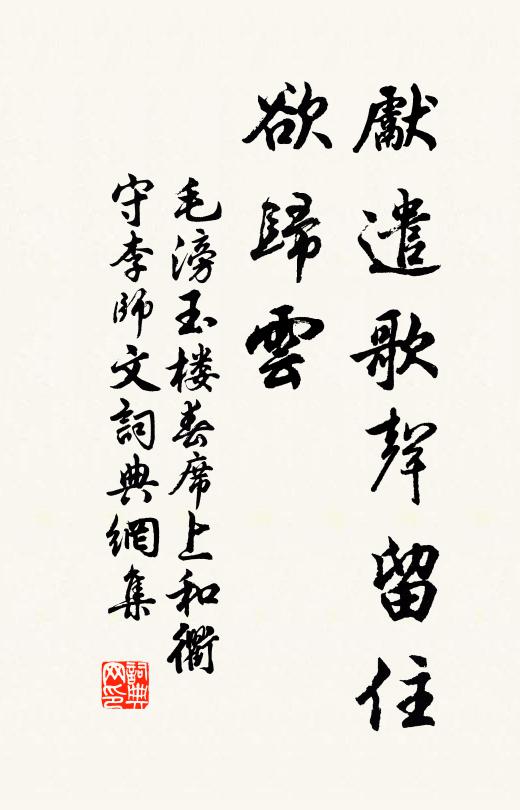 獻遣歌聲留住
欲歸雲
毛滂玉楼春席上和衢
守李師文詞典網集
詞典
网印